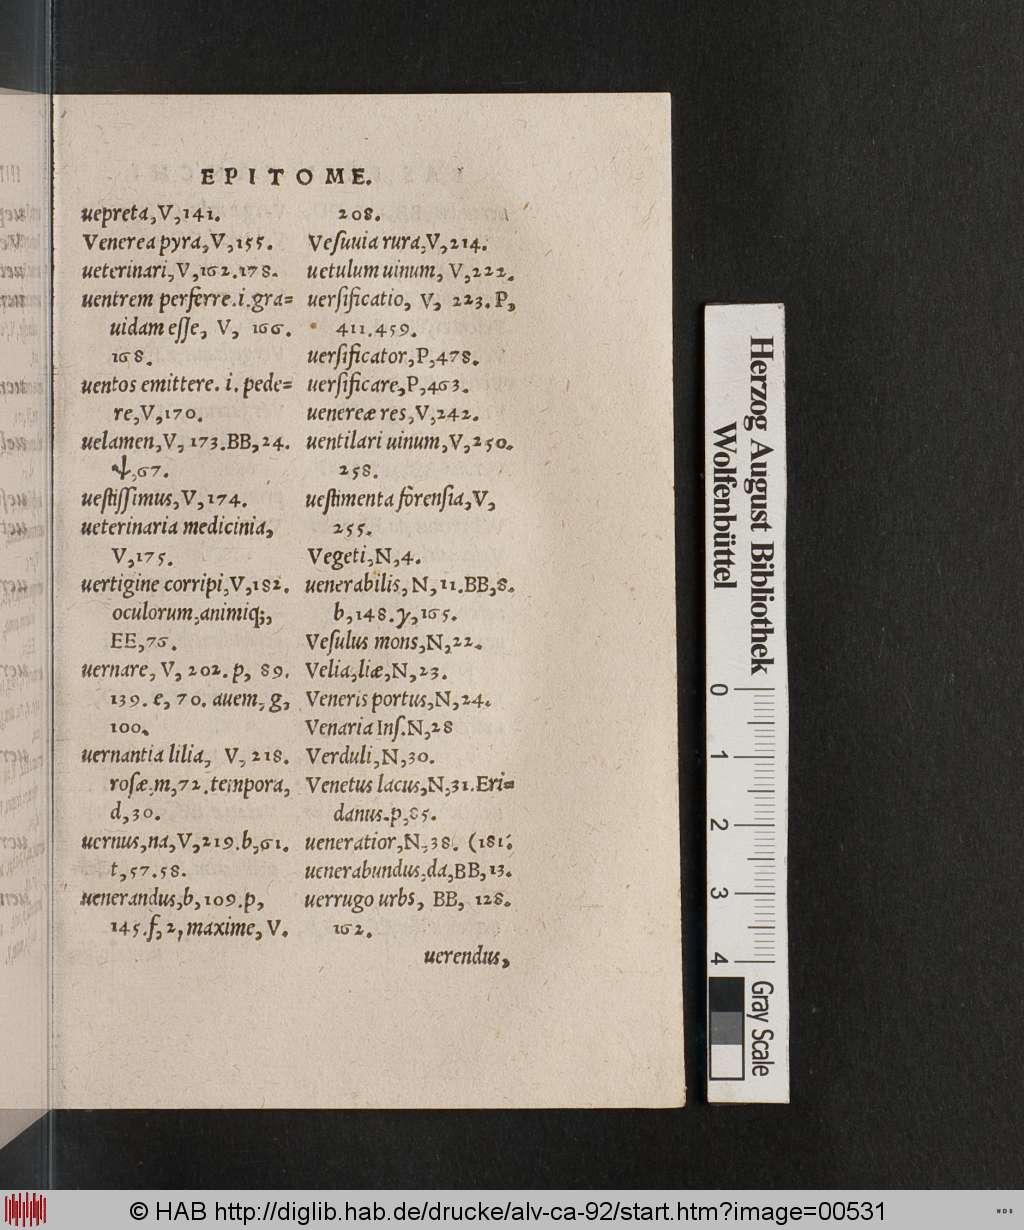 EPITOME.
uepreta,V,141.
Venerea pyra,V,155.
ueterinari,V,162.178.
uentrem perferre.i.gra=
uidam eſſe, V, 166.
168.
uentos emittere.i.pede=
re,V,170.
uelamen,V, 173.BB,24.
ψ,67.
ueſtiſſimus,V,174.
ueterinaria medicinia,
V,175.
uertigine corripi,V,182.
oculorum,animiq;,
EE,76.
uernare, V, 202. p, 89.
139. e, 70. auem, g,
100.
uernantia lilia, V, 218.
roſæ,m,72.tempora,
d,30.
uernus,na,V,219.b,61.
t,57.58.
uenerandus,b,109.p,
145.f,2,maxime, V.
208.
Veſuuia rura,V,214.
uetulum uinum, V,222.
uerſificatio, V, 223.P,
411.459.
uerſificator,P,478.
uerſificare,P,463.
uenereæ res,V,242.
uentilari uinum,V,250.
258.
ueſtimenta forenſia,V,
255.
Vegeti,N,4.
uenerabilis, N,11.BB,8.
b,148.y,165.
Veſulus mons,N,22.
Velia,liæ,N,23.
Veneris portus,N,24.
Venaria Inſ.N,28
Verduli,N,30.
Venetus lacus,N,31.Eri=
danus.p,85.
ueneratior,N,38. (181.
uenerabundus,da,BB,13.
uerrugo urbs, BB, 128.
162.
uerendus,
Herzog August Bibliothek
Wolfenbüttel
0 1 2 3 4
Gray Scale
© HAB http://diglib.hab.de/drucke/alv-ca-92/start.htm?image=00531